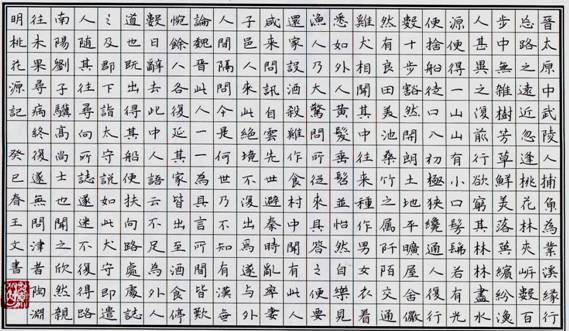 晉太原中武陵人捕魚為業緣溪行
忘路之遠近忽逢桃花林夾岸數百
步中無雜樹芳草鮮美落英繽紛漁
人甚異之復前行欲窮其林林盡水
源便得一山山有小口髣髴若有光
便捨船從口入初極狹纔通人復行
數十步豁然開朗土地平曠屋舍儼
然有良田美池桑竹之屬阡陌交通
雞犬相聞其中往來種作男女衣著
悉如外人黃髮垂髫並怡然自樂見
漁人乃大驚問所從來具答之便要
還家設酒殺雞作食村中聞有此人
咸來問訊自云先世避秦時亂率妻
子邑人來此絕境不復出焉遂與外
人間隔問今是何世乃不知有漢無
論魏晉此人一一為具言所聞皆歎
惋餘人各復延至其家皆出酒食停
數日辭去此中人語云不足為外人
道也既出得其船便扶向路處處誌
之及郡下詣太守說如此太守即遣
人隨其往尋向所誌遂迷不復得路
南陽劉子驥高尚士也聞之欣然親
往未果尋病終後遂無問津者陶淵
明桃花源記 癸巳春王文書